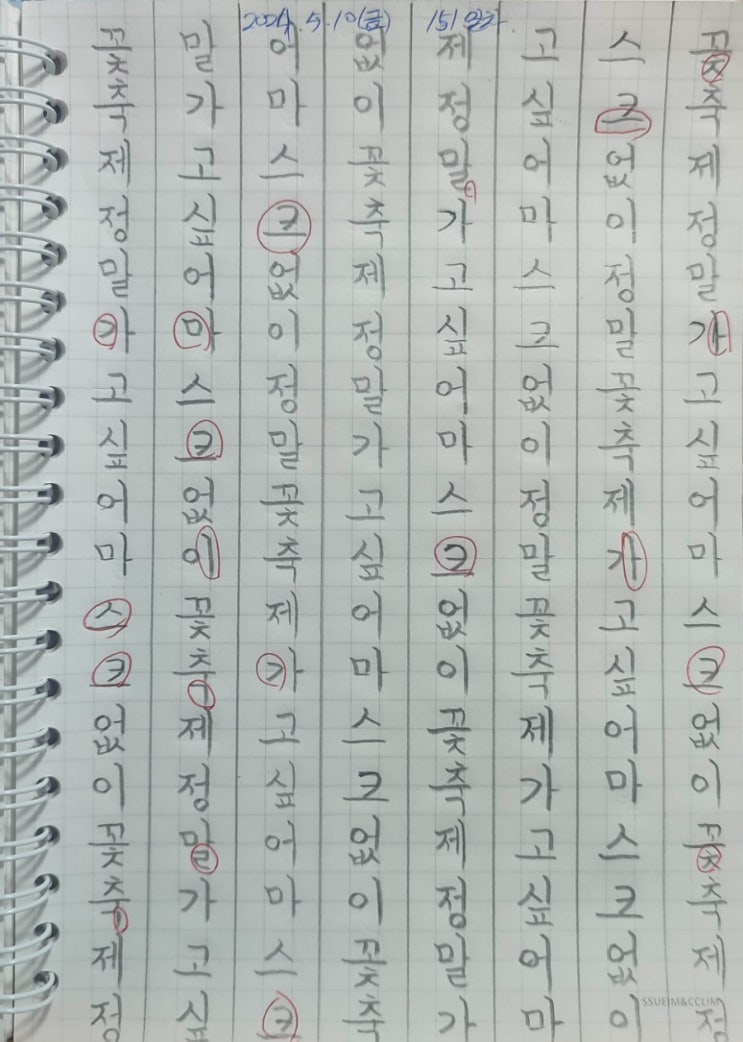 2024. 5. 10(금) 151일차
꽃축제정말가고싶어마스크없이꽃축제정
말가고싶어마스크없이꽃축제정말가고싶
어마스크없이정말꽃축제가고싶어마스크
없이꽃축제정말가고싶어마스크없이꽃축
제정말가고싶어마스크없이꽃축제정말가
고싶어마스크없이정말꽃축제가고싶어마
스크없이정말꽃축제가고싶어마스크없이
꽃축제정말가고싶어마스크없이꽃축제정
SSUEIM&CCLIM